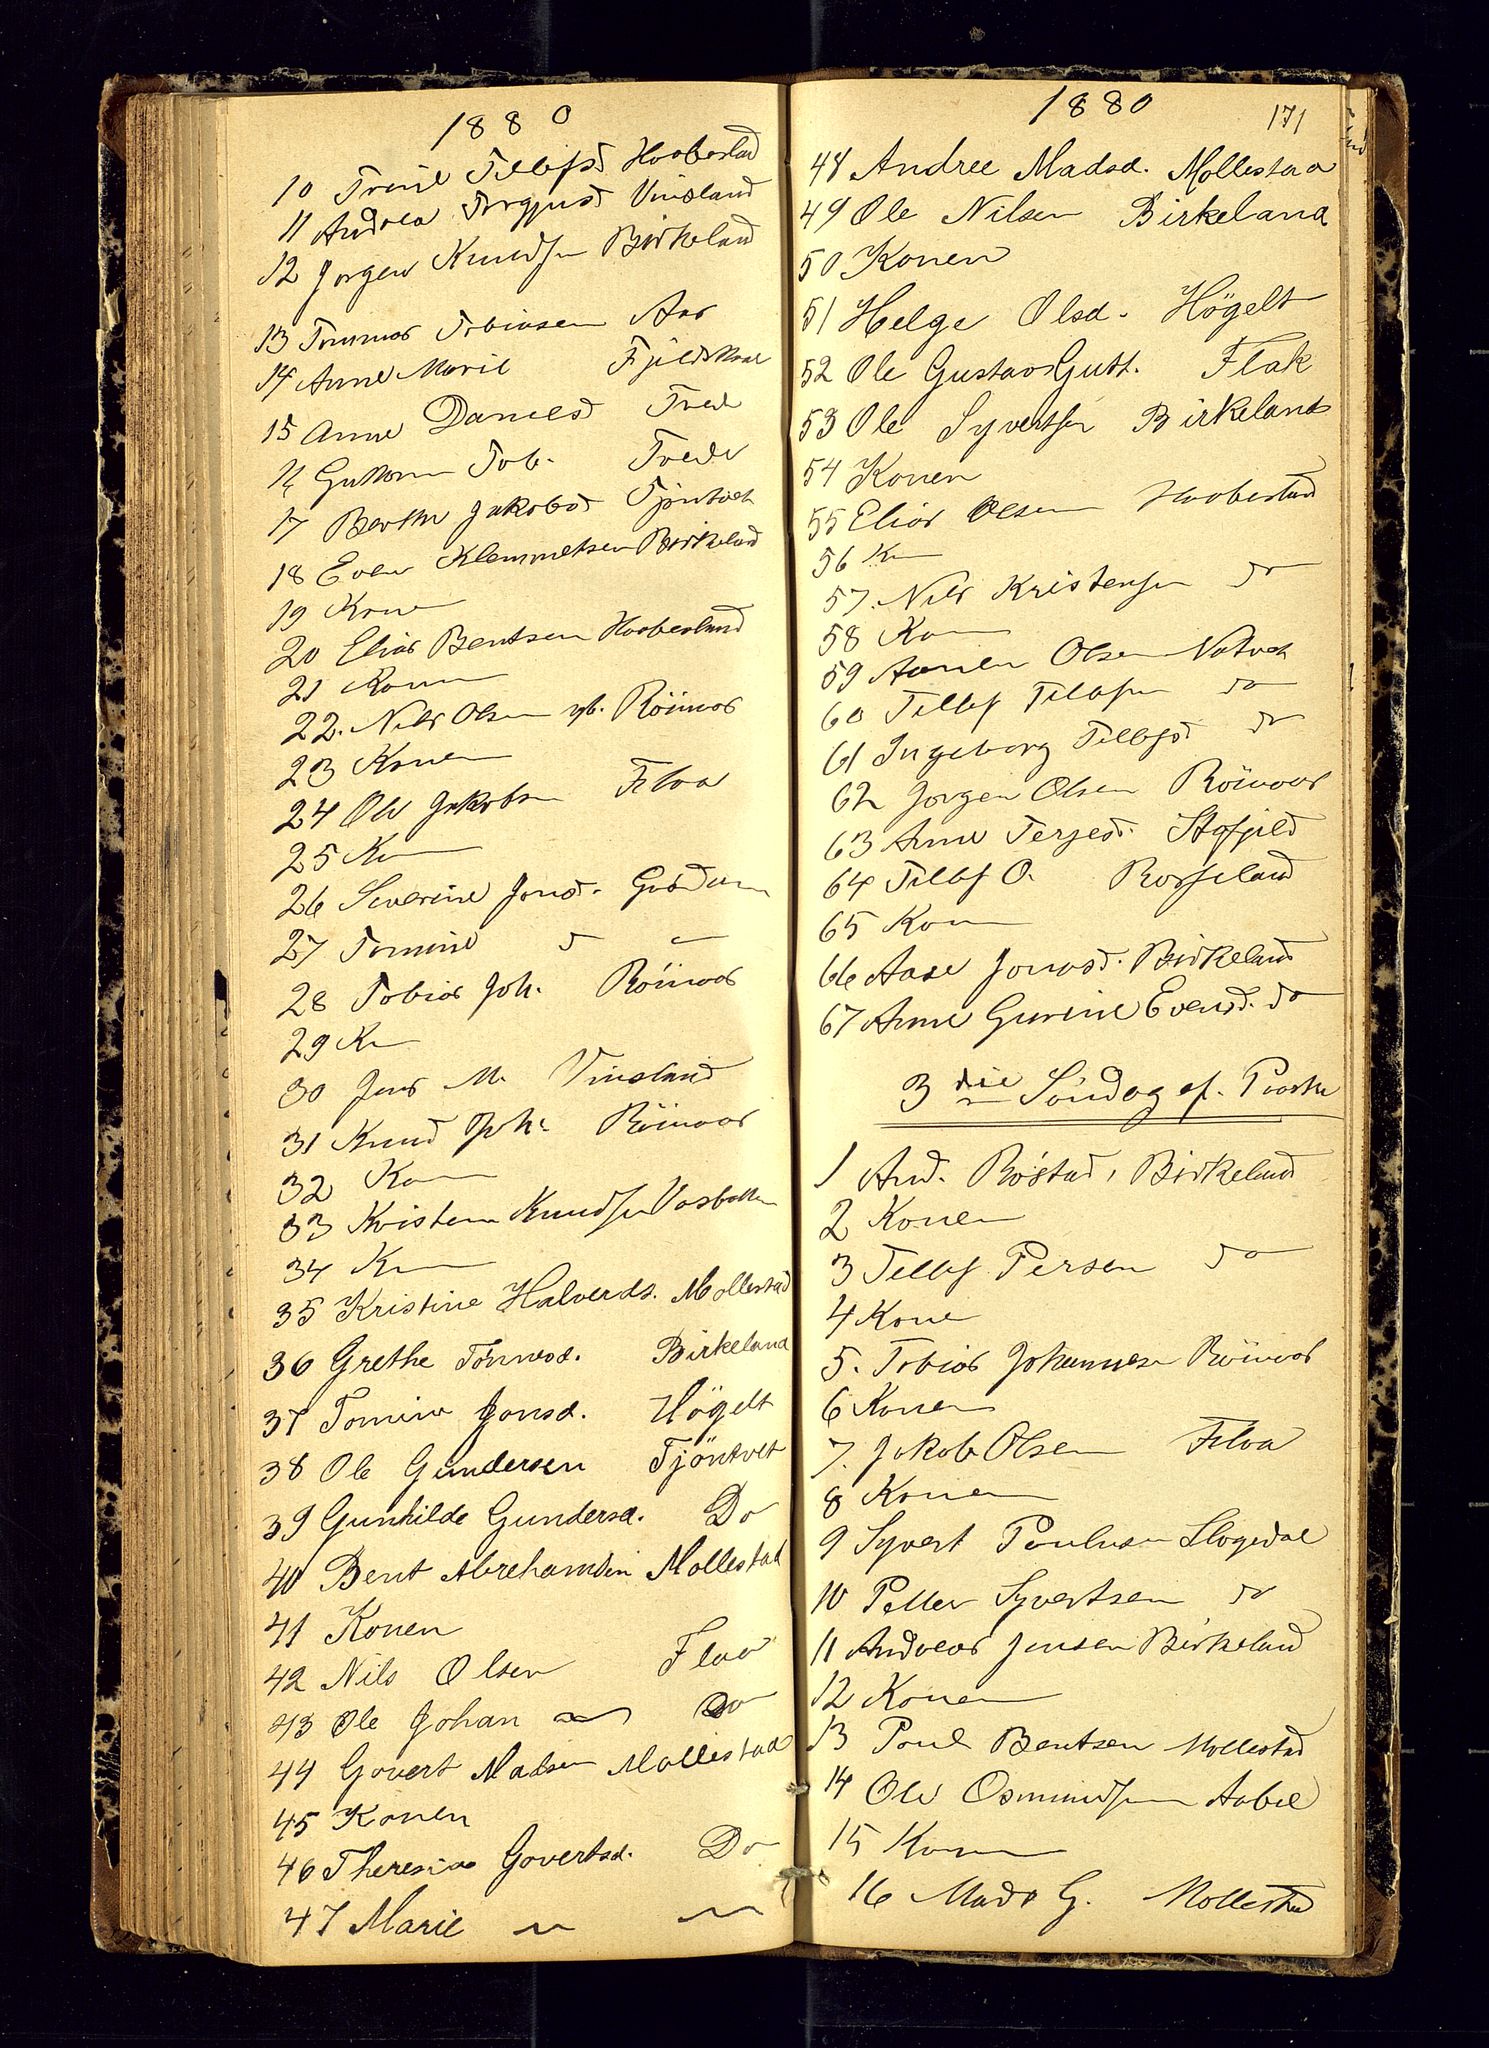 1880
10 Trine Tellefsd Haaberlad
11 Andrea Torgjusd Vinsland
12 Jørgen Knudsen Birkeland
13 Tommas Tobiasen Aas
14 Anne Marie
15 Anne Danielsd Trede
16 Guttorm Tob. Trede
17 Berthe Jakobsd Tjöntvet
18 Even Klemmetsen Birkeland
19 Kone
20 Elias Bentsen Haaberland
21 Konen
22. Nils Olsen yb. Röinaas
23 Konen
24 Ole Jakobsen Flaa
25 Kn
26 Severine Jonsd.
27 Tomine d
28 Tobias Joh. Röinaas
29 Kn
30 Jens M. Vinsland
31 Knud Joh. Röinaas
32 Kon
33 Kristen Knudsen Vasbotten
34 Kn
35 Kristine Halverds. Mollestad
36 Grethe Tønnesd. Birkeland
37 Tomine Jonsd. Högelt
38 Ole Gundersen Tjöntvet
39 Gunhilde Gundersd. Do
40 Bent Abrehamsen Mollestad
41 Konen
42 Nils Olsen Flaa
43 Ole Johan Do
44 Govert Madsen Mollestad
45 Konen
46 Theresine Govertsd. Do
47 Marie
1880
171
48 Andree Madsd. Mollestad
49 Ole Nilsen Birkeland
50 Konen
51 Helge Olsd. Högelt
52 Ole Gustavs Gutt. Flak
53 Ole Syvertsen Birkeland
54 Konen
55 Elias Olsen Haaberland
56 Kn
57. Nils Kristensen do
58 Kon
59 Olsen Natvet
60 Tellef Tellefsen do
61 Ingeborg Tellefsd do
62 Jørgen Olsen Röinaas
63 Anne Terjesd.
64 Tellef O. Rosseland
65 Kon
66 Aase Jonasd. Birkeland
67 Anne Gurine Evensd. do
3die Søndag ef. Paaske
1 And. Røstad, Birkeland
2 Konen
3 Tellef Persen do
4 Kone
5. Tobias Johannesen Röinaas
6 Konen
7. Jakob Olsen Flaa
8 Konen
9 Syvert Paulusen Slogedal
10 Petter Syvertsen do
11 Andreas Jensen Birkeland
12 Konen
13 Poul Bentsen Mollestad
14 Ole Osmundsen Aabel
15 Konen
16 Mads G. Mollestad